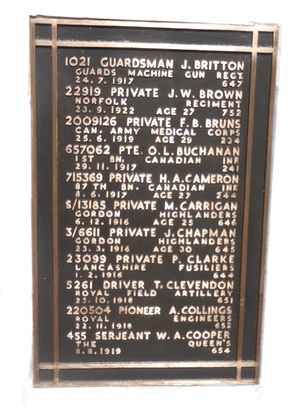 1021 GUARDSMAN J. BRITTON
GUARDS MACHINE GUN REGT.
24. 7. 1917 647
22919 PRIVATE J. W. BROWN
NORFOLK REGIMENT
23. 9. 1922 AGE 27 752
2009126 PRIVATE F. B. BRUNS
CAN. ARMY MEDICAL CORPS
25. 6. 1919 AGE 29 234
657062 PTE. O. L. BUCHANAN
1ST BN. CANADIAN INF
29. 11. 1917 241
715369 PRIVATE H. A. CAMERON
87TH BN. CANADIAN INF
8. 6. 1917 AGE 27 244
S/13185 PRIVATE M. CARRIGAN
GORDON HIGHLANDERS
6. 12. 1916 AGE 25 646
3/6611 PRIVATE J. CHAPMAN
GORDON HIGHLANDERS
23. 3. 1916 AGE 30 645
23099 PRIVATE P. CLARKE
LANCASHIRE FUSILIERS
1. 2. 1916 644
5261 DRIVER T. CLEVENDON
ROYAL FIELD ARTILLERY
23. 10. 1918 651
220504 PIONEER A. COLLINGS
ROYAL ENGINEERS
22. 11. 1918 652
455 SERJEANT W. A. COOPER
THE QUEEN'S
8. 8. 1919 654